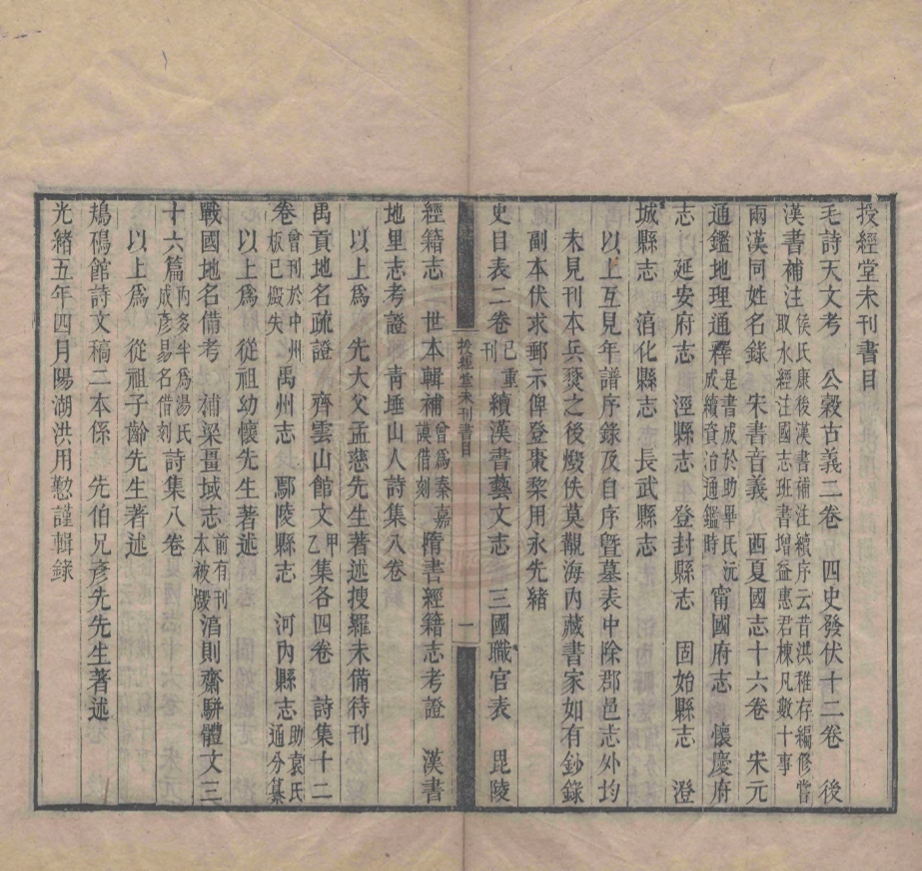 授經堂未刊書目
毛詩天文考　公穀古義二卷　四史發伏十二卷　後
漢書補注侯氏康後漢書補注續序云昔洪稚存編修嘗取水經注國志班書增益惠君棟凡數十事
兩漢同姓名錄　宋書音義　西夏國志十六卷　宋元
通鑑地理通釋是書成於助畢氏沅成續資治通鑑時甯國府志　懷慶府
志　延安府志　涇縣志　登封縣志　固始縣志　澄
城縣志　淯化縣志　長武縣志
以上互見年譜序錄及自序暨墓表中除郡邑志外均
未見刊本兵燹之後燬佚莫覩海內藏書家如有鈔錄
副本伏求郵示俾登棗棃用永先緒
史目表二卷已重刊續漢書藝文志　三國職官表　毘陵
授經堂未刊書目
一
經籍志　世本輯補曾為秦嘉謨借刻隋書經籍志考證　漢書
地里志考證　靑埵山人詩集八卷
以上爲　先大父孟慈先生著述搜羅未備待刊
禹貢地名疏證　齊雲山館文甲乙集各四卷　詩集十二
卷曾刊於中州版已燬失　禹州志　鄢陵縣志　河內縣志助袁氏通分纂
以上爲　從祖幼懷先生著述
戰國地名備考　補梁疆域志前有刊本被燬淯則齋駢體文三
十六篇內多半爲湯氏成彥易名借刻詩集八卷
以上爲　從祖子齡先生著述
鳷礀館詩文稿二本係　先伯兄彥先先生著述
光緒五年四月陽湖洪用懃謹輯錄